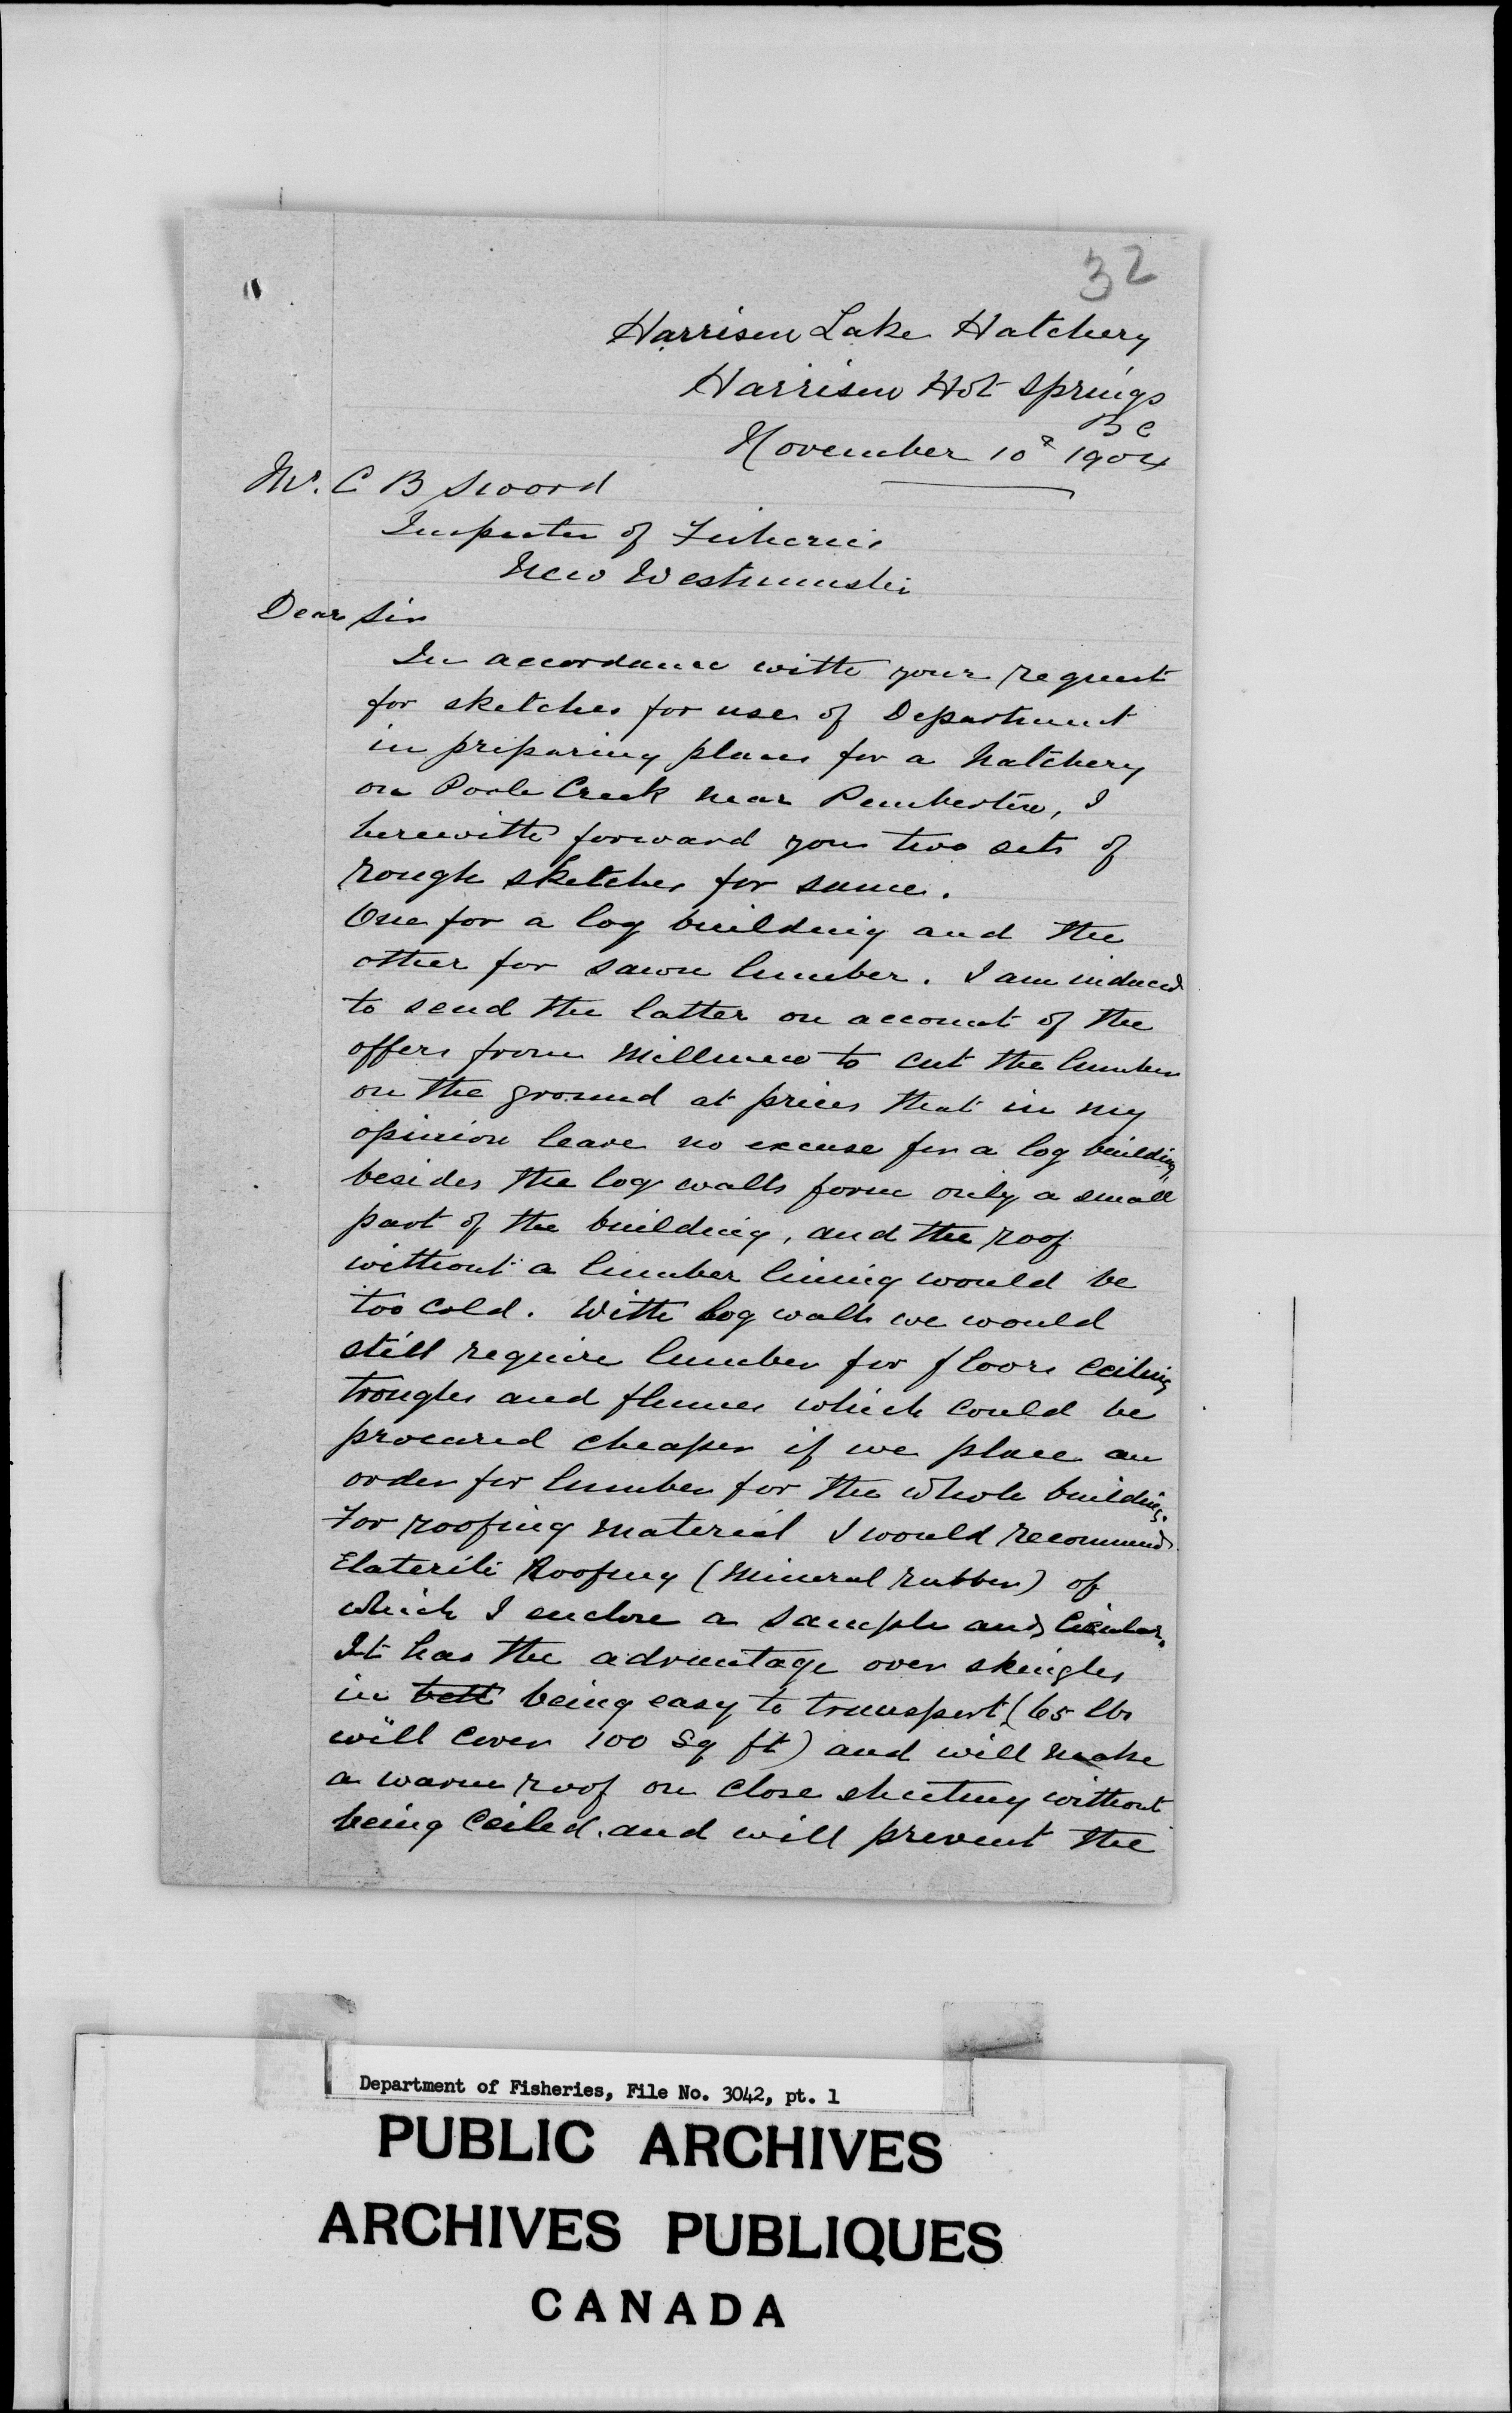 32
Harrison Lake Hatchery
Harrison Hot Springs
B C
November 10th 1904
Mr. C B Sword
Inspector of Fisheries
New Westminster
Dear Sir
In accordance with your request
for sketches for use of Department
in preparing plans for a hatchery
on Poole Creek near Pemberton, I
herewith forward you two sets of
rough sketches for same.
One for a log building and the
other for sawn lumber. I am induced
to send the latter on account of the
offers from Millmen to cut the lumber
on the ground at prices that in my
opinion leave no excuse for a log building
besides the log walls form only a small
part of the building, and the roof
without a lumber lining would be
too cold. With log walls we would
still require lumber for floors ceiling
troughs and flumes which could be
procured cheaper if we place an
order for lumber for the whole building.
For roofing material I would recommend
Elaterite Roofing (Mineral rubber) of
which I enclose a sample and Circular.
It has the advantage over shingles
in being easy to transport (65 lbs
will cover 100 Sq ft) and will make
a warm roof on close sheeting without
being Ceiled. and will prevent the
Department of Fisheries, File No. 3042, pt. 1
PUBLIC ARCHIVES
ARCHIVES PUBLIQUES
CANADA